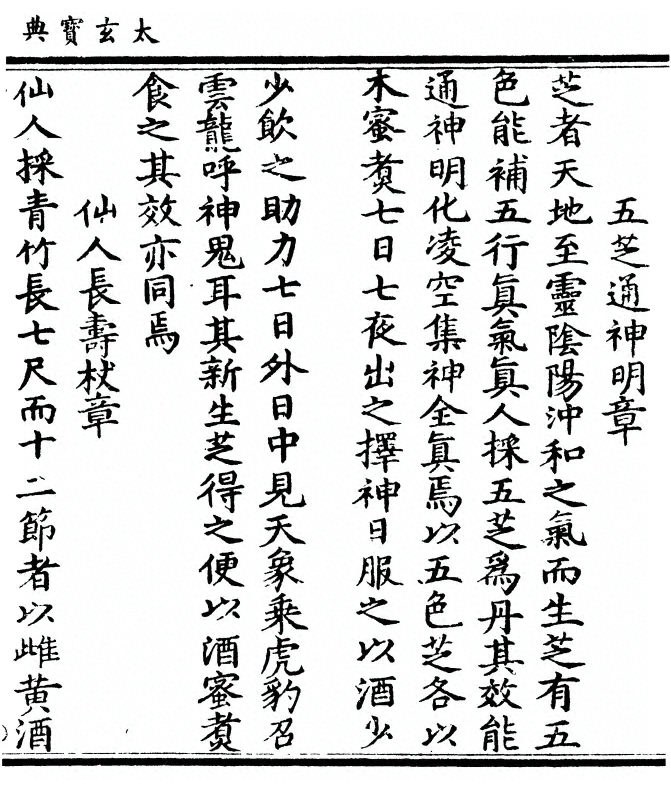 太玄寶典
五芝通神明章
芝者天地至靈陰陽沖和之氣而生芝有五
色能補五行眞氣眞人採五芝爲丹其效能
通神明化凌空集神全眞焉以五色芝各以
木蜜煑七日七夜出之擇神日服之以酒少
少飲之助力七日外日中見天象乘虎豹召
雲龍呼神鬼耳其新生芝得之便以酒蜜煑
食之其效亦同焉
仙人長壽杖章
仙人採青竹長七尺而十二節者以雌黃酒